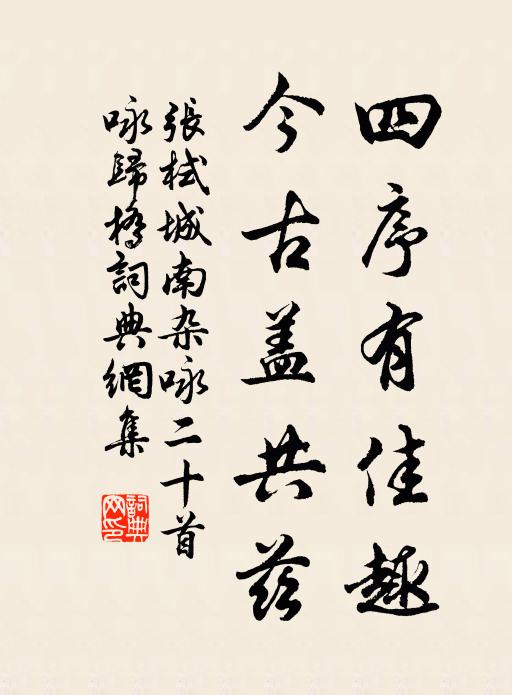 四序有佳趣
今古盖共兹
張栻城南杂咏二十首
咏歸橋詞典網集
詞典网印